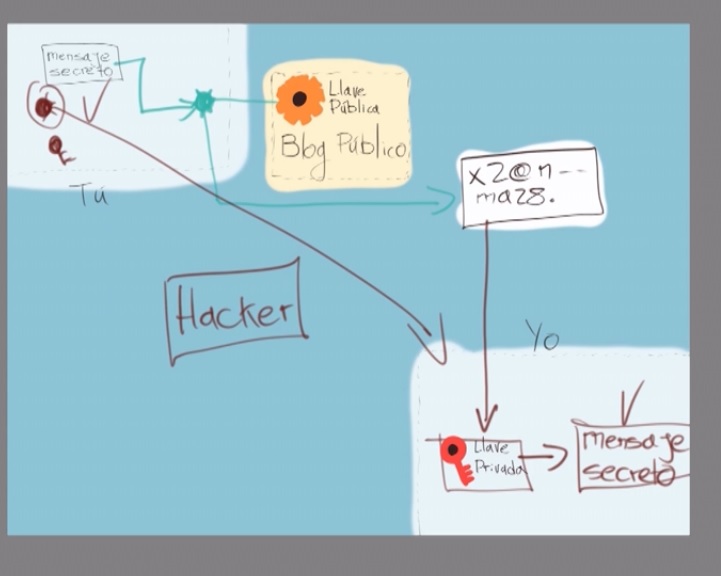 mensaje
secreto
Llave
Pública
Blog Público
x2@n--
ma28.
Tú
Hacker
Yo
Llave
Privada
mensaje
secreto